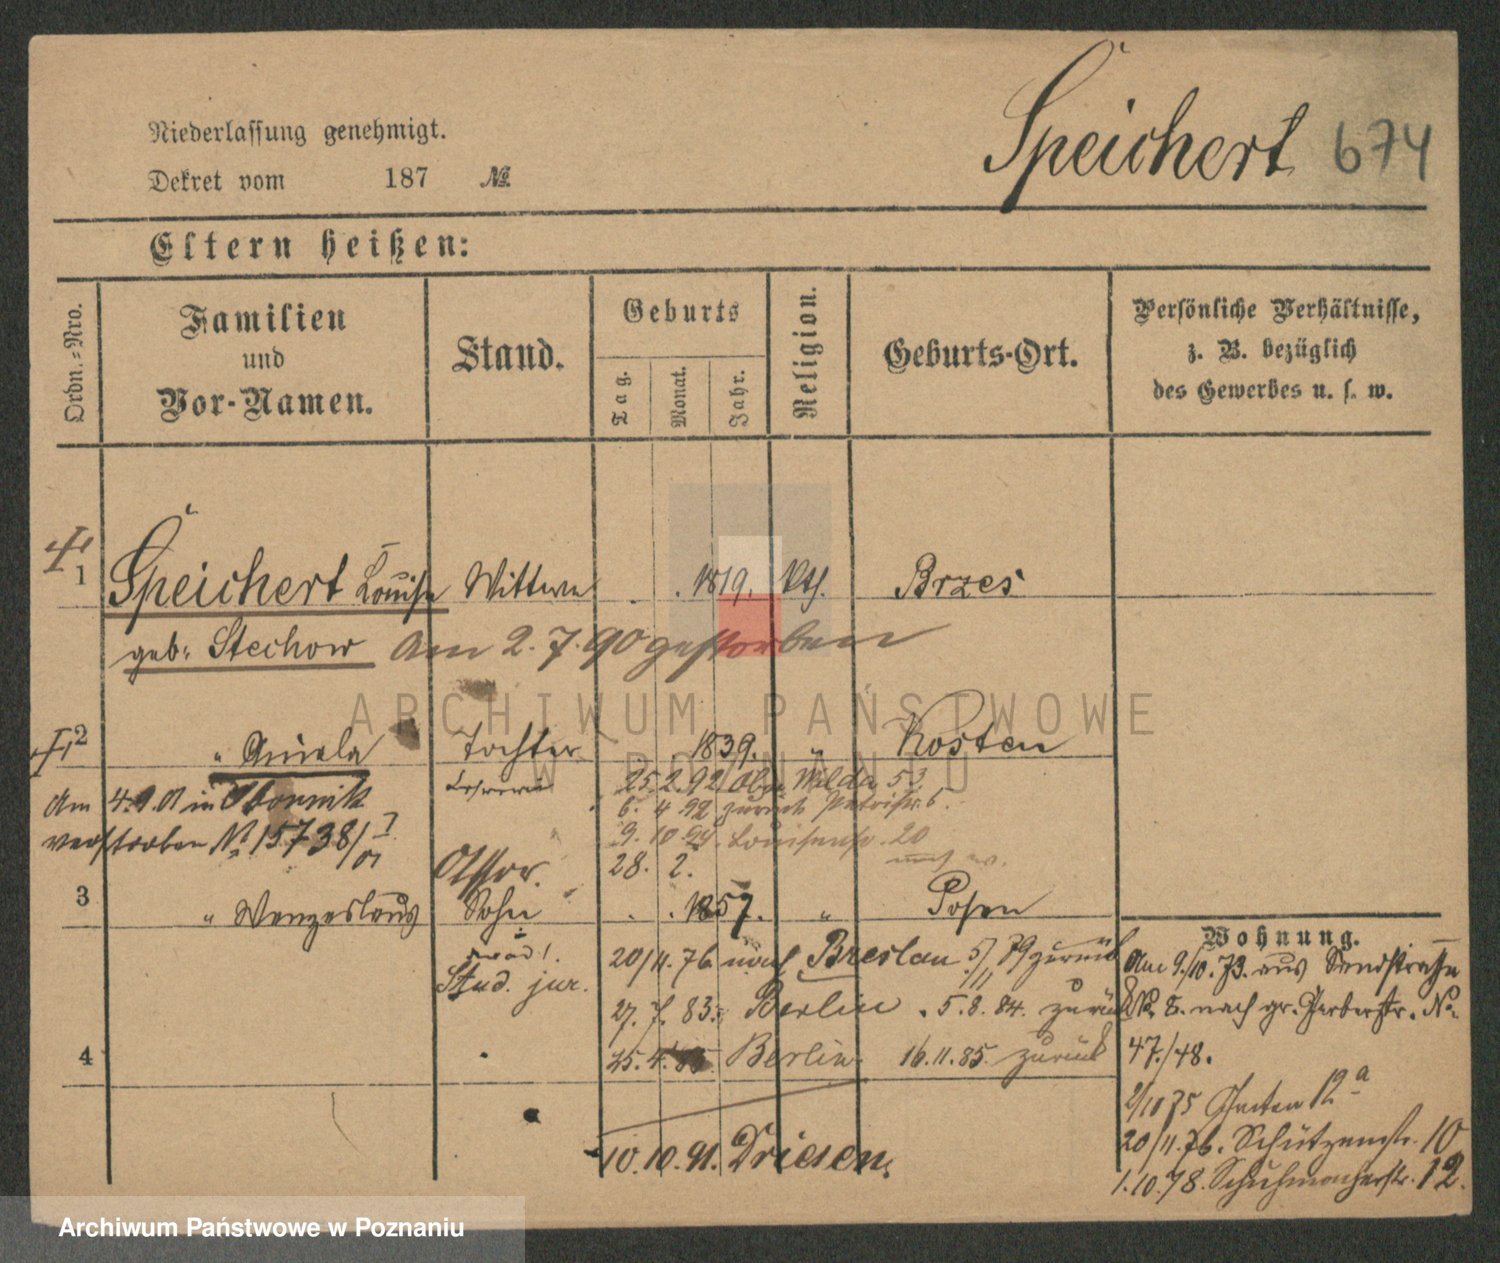 Speichert 674
Niederlassung genehmigt.
Dekret vom 187 №
Eltern heißen:
Ordn.-Nro.
Familien
und
Vor-Namen.
Stand.
Geburts
Tag.
Monat.
Jahr.
Religion.
Geburts-Ort.
Persönliche Verhältnisse,
z. B. bezüglich
des Gewerbes u. s. w.
1 Speichert Louise Wittwe 1819. kth. Brzes
geb: Stechow Am 2.7.90 gestorben
2 " Aniela Tochter 1839. " Kosten
Lehrerin 25.2.92 Ober Wilda 53
6. 4 92 zurück Petristr. 6.
Am 4.9.01 in Obornik
9. 10. 94. Louisenstr. 20
verstorben № 15738/I 01
28. 2.
Assor.
3 " Wenzeslaus Sohn 1857. " Posen
Stud. jur.
20/4.76 nach Breslau 5/11 79 zurück
27. 7. 83. Berlin . 5. 8. 84. zurück
4 25. 4. 85 Berlin. 16.11.85. zurück
10.10.91. Driesen.
Wohnung.
Am 9./10.73. aus Sandstraße
№ 8. nach gr. Gerberstr. №
47./48.
2/10 75 Graben 12 a
20/4.76. Schützenstr. 10
1.10.78. Schuhmacherstr. 12.
ARCHIWUM PAŃSTWOWE
W POZNANIU
Archiwum Państwowe w Poznaniu